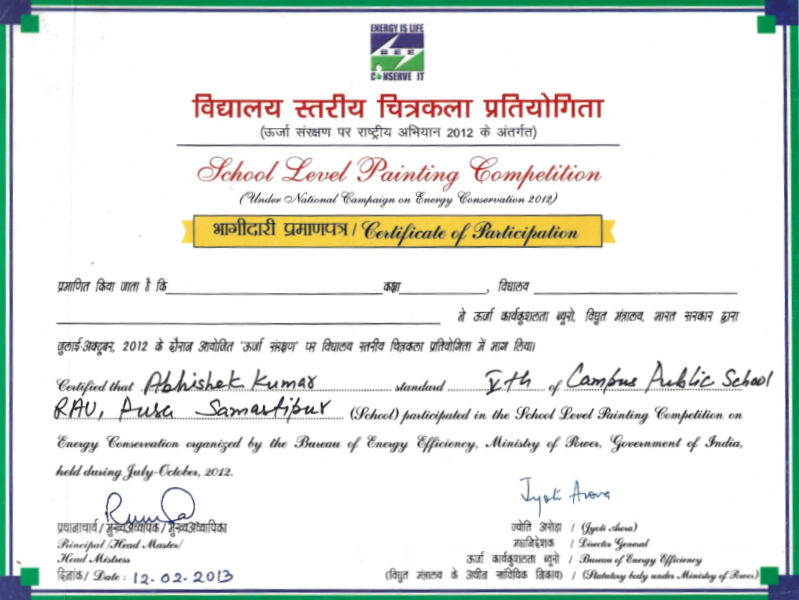 ENERGY IS LIFE
BEE
CONSERVE IT
विद्यालय स्तरीय चित्रकला प्रतियोगिता
(ऊर्जा संरक्षण पर राष्ट्रीय अभियान 2012 के अंतर्गत)
School Level Painting Competition
(Under National Campaign on Energy Conservation 2012)
भागीदारी प्रमाणपत्र / Certificate of Participation
प्रमाणित किया जाता है कि कक्षा , विद्यालय
ने ऊर्जा कार्यकुशलता ब्यूरो, विद्युत मंत्रालय, भारत सरकार द्वारा
जुलाई-अक्टूबर, 2012 के दौरान आयोजित 'ऊर्जा संरक्षण' पर विद्यालय स्तरीय चित्रकला प्रतियोगिता में भाग लिया।
Certified that Abhishek Kumar standard Vth of Campus Public School
RAU, Pusa Samastipur (School) participated in the School Level Painting Competition on
Energy Conservation organized by the Bureau of Energy Efficiency, Ministry of Power, Government of India,
held during July-October, 2012.
Jyoti Arora
प्रधानाचार्य / मुख्यअध्यापक / मुख्यअध्यापिका ज्योति अरोड़ा / (Jyoti Arora)
Principal /Head Master/ महानिदेशक / Director General
Head Mistress ऊर्जा कार्यकुशलता ब्यूरो / Bureau of Energy Efficiency
दिनांक/ Date : 12-02-2013 (विद्युत मंत्रालय के अधीन सांविधिक निकाय) / (Statutory body under Ministry of Power)